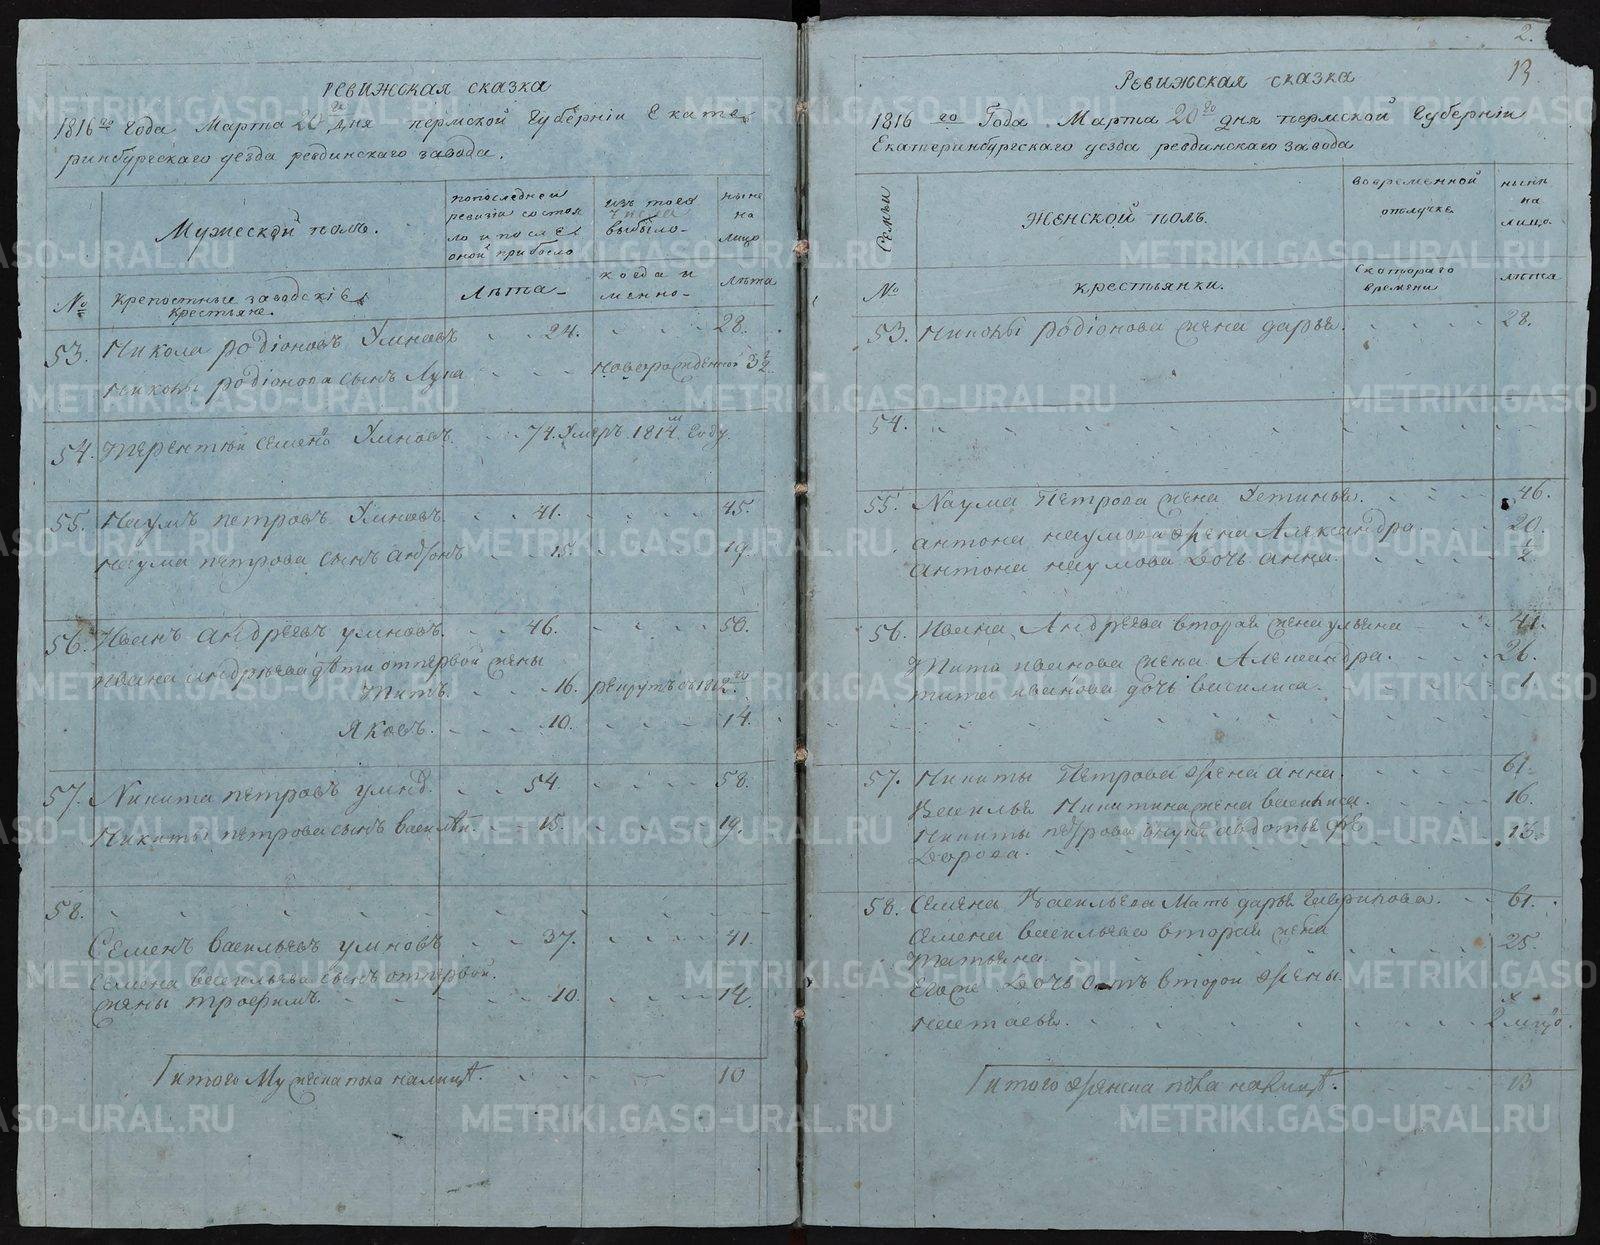 Ревижская сказка
1816го Года Марта 20го дня пермской Губерніи Екате
ринбургскаго уезда ревдинскаго завода.
Мужеской полъ.
попоследней
ревизіи состоя
ло и после
оной прибыло
изъ того
числа
выбыло
ныне
на
лицо
№
крепостные заводскіе
крестьяне.
Лѣта
когда и
менно
лѣта
53. Никола родіоновъ Умновъ 24. 28.
Николы родіонова сынъ Лука новорожденной 3 1/2
54. Терентий Семеновъ Умновъ. 74. Умеръ 1814 году
55. Наумъ петровъ Умновъ. 41. 45.
Наума петрова сынъ антонъ 15. 19.
56. Иванъ андреевъ умновъ. 46. 50.
Ивана андреева дѣти отпервой жены
Титъ. 16. рекрутъ съ 1812го
Яковъ. 10. 14.
57. Никита петровъ умновъ. 54. 58.
Никиты петрова сынъ василей. 15. 19.
58.
Семенъ васильевъ умновъ 37. 41.
Семена васильева сынъ отпервой
жены трофимъ. 10. 14.
Итого Мужеска пола налицо. 10
2.
13
Ревижская сказка
1816 го Года Марта 20го дня пермской Губерніи
Екатеринбургскаго уезда ревдинскаго завода
Семьи
Женской полъ.
вовременной
отлучке
ныне
на
лицо.
№
крестьянки.
скотораго
времени
лѣта
53. Николы родіонова жена дарья. 28.
54.
55. Наума Петрова жена Устинья. 46.
антона наумова жена Александра. 20.
антона наумова дочь анна. 1/2
56. Ивана Андреева вторая жена ульяна 41.
Тита иванова жена Александра. 26.
тита иванова дочь василиса. 1
57. Никиты Петрова жена анна. 61.
Василья Никитина жена василиса. 16.
Никиты петрова внука авдотья фе
дорова. 13.
58. Семена Васильева Мать дарья Гаврилова. 61.
Семена васильева вторая жена
Татьяна. 25.
Егоже дочь отъ второй жены.
Настасья. 2 мѣц
Итого женска пола налицо. 13
METRIKI.GASO-URAL.RU